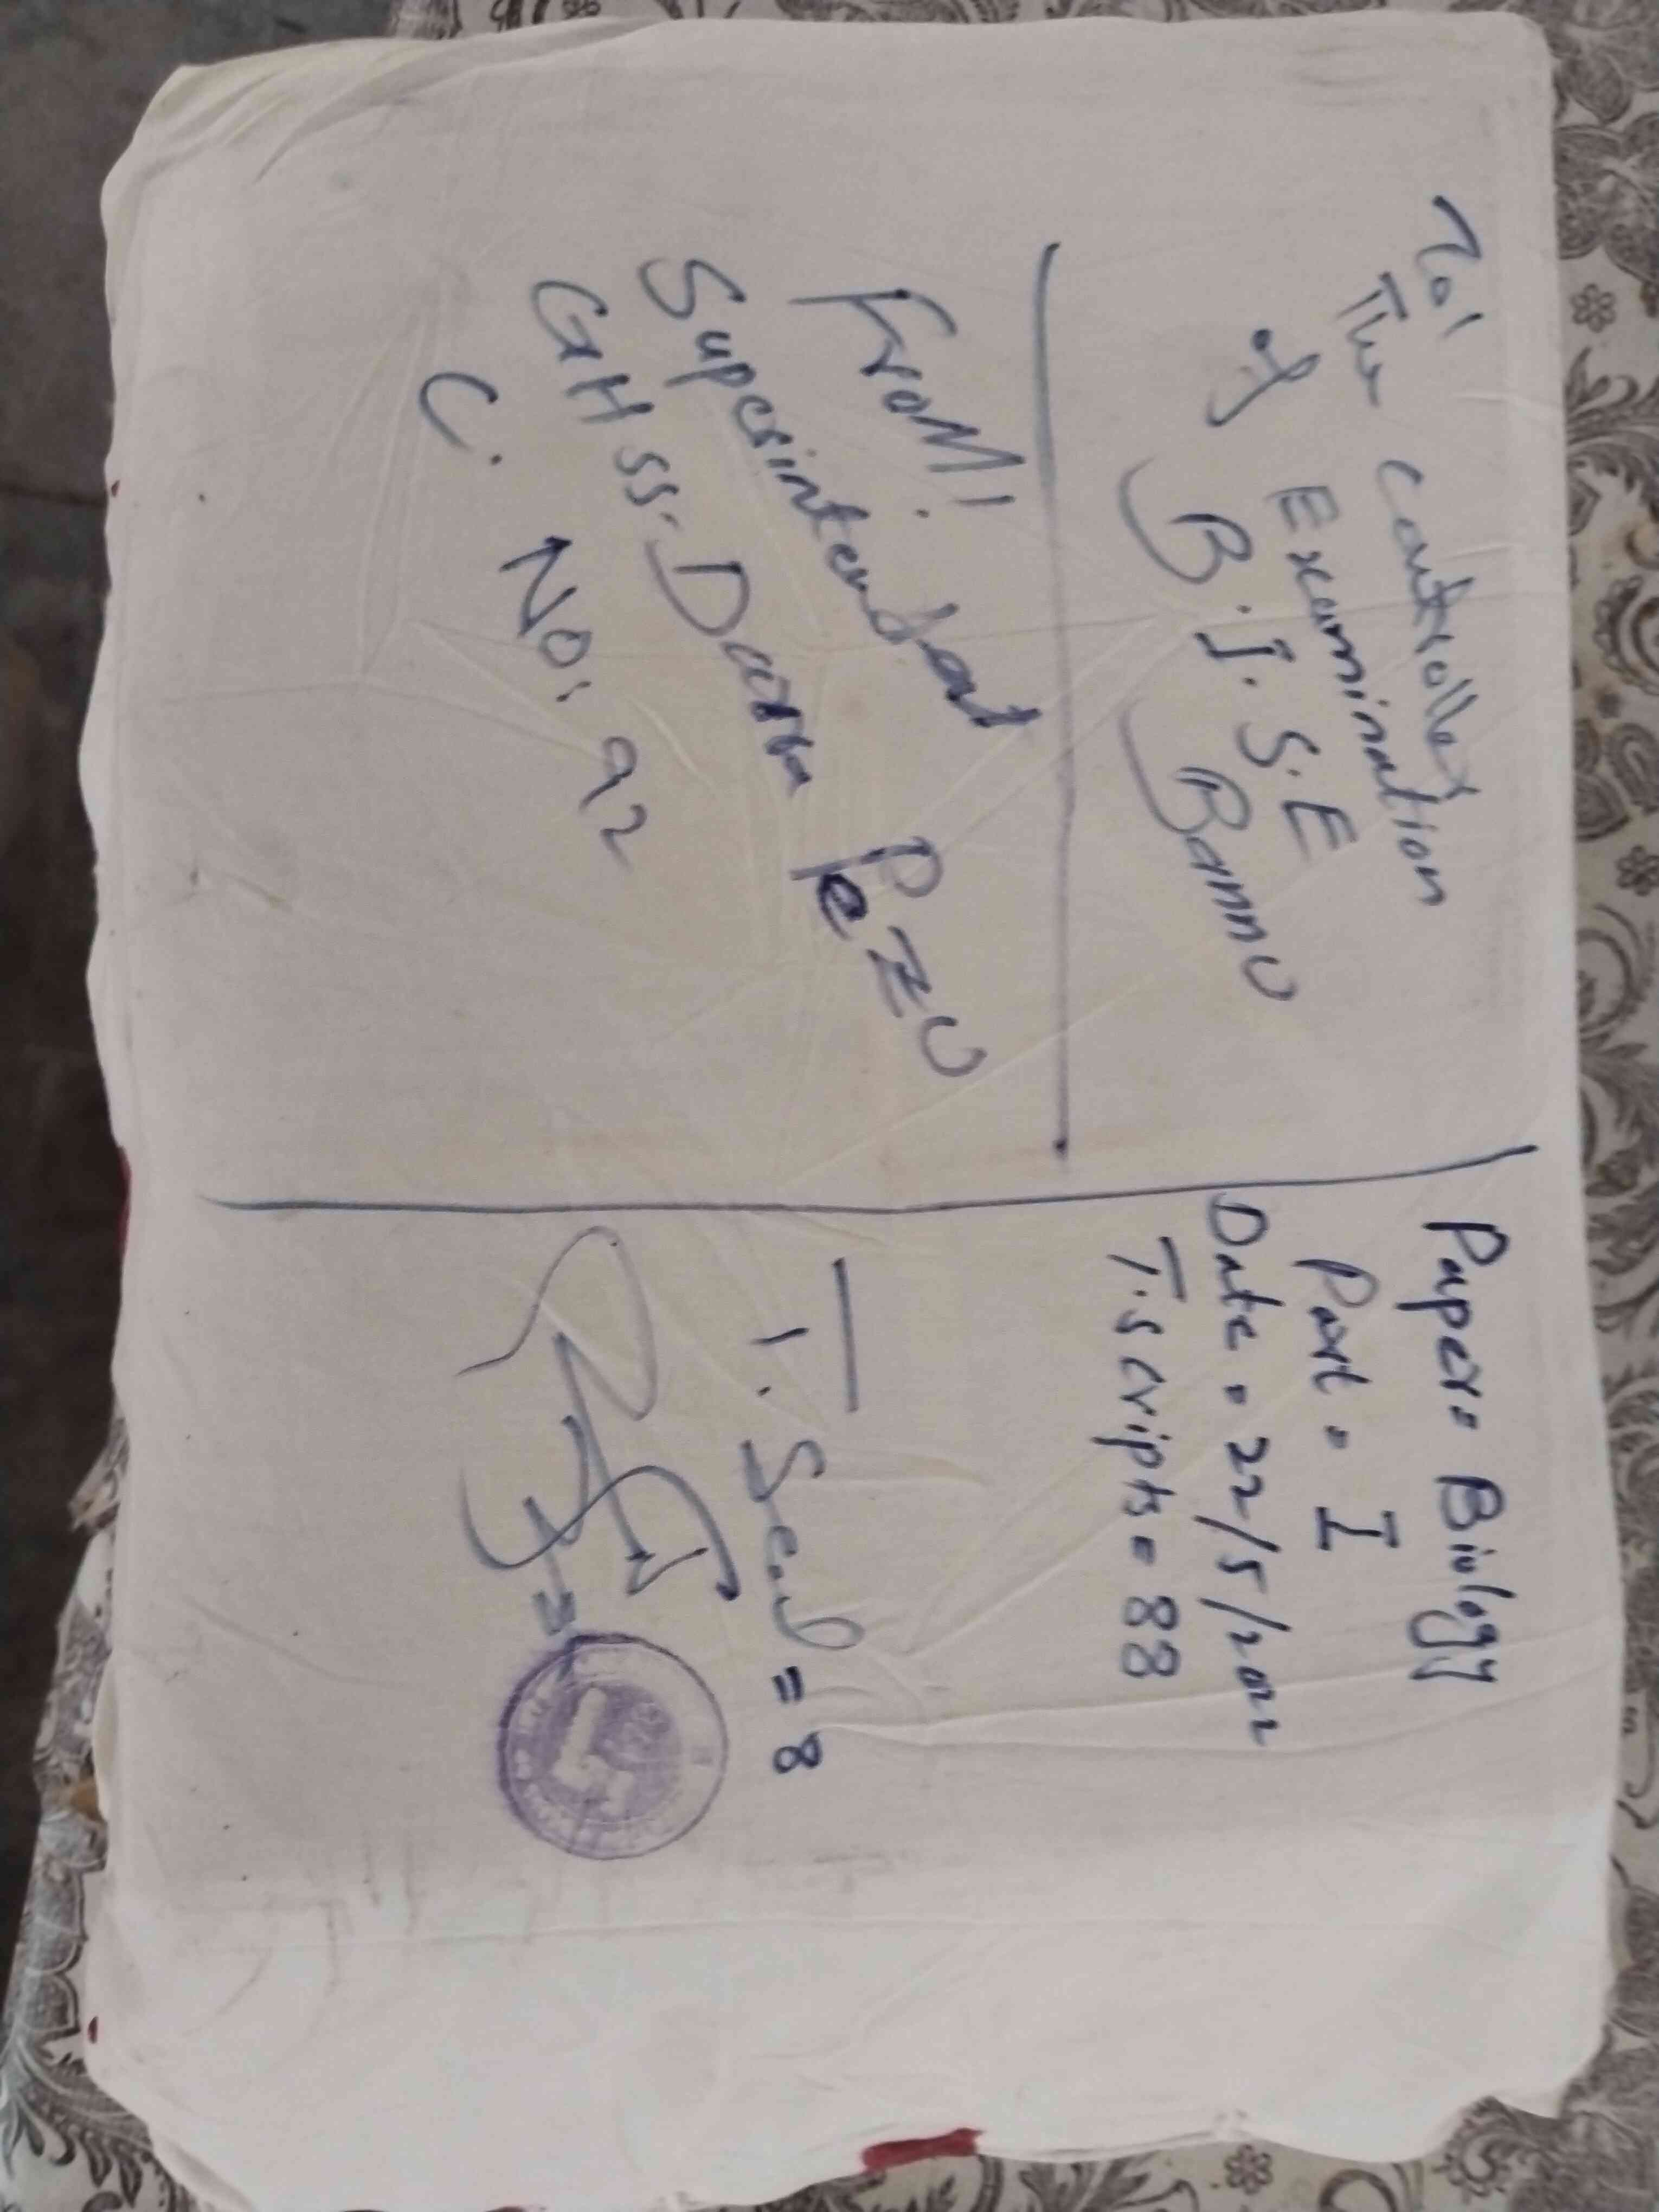 To!
The Controller
of Examination
B.I.S.E
Bannu
From!
Superintendent
GHSS. Darra Pezu
C. No: 92
Paper = Biology
Part = I
Date = 22/5/2022
T.Scripts = 88
T. Seal = 8